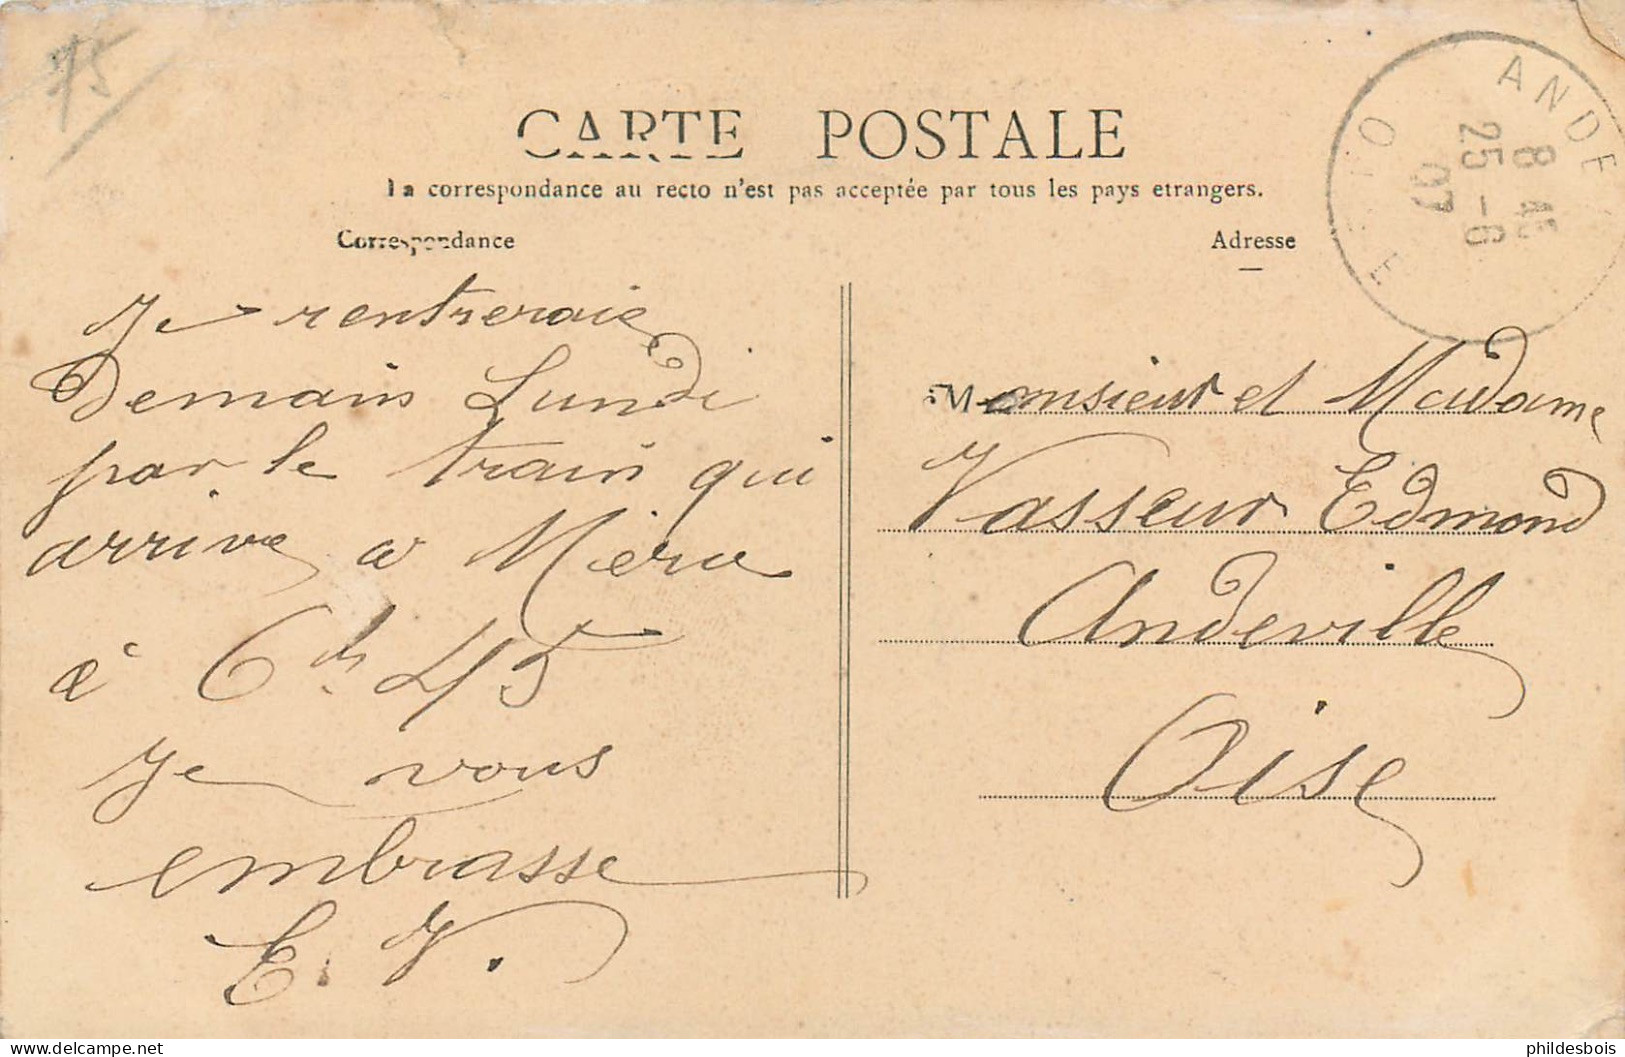 75
CARTE POSTALE
La correspondance au recto n'est pas acceptée par tous les pays etrangers.
Correspondance
Adresse
ANDE
8 45
25 - 6
07
O
E
Je rentreraie
Demain Lundi
par le train qui
arrive a Méru
à 6h 45
Je vous
embrasse
E. V.
Monsieur et Madame
Vasseur Edmond
Andeville
Oise
phildesbois